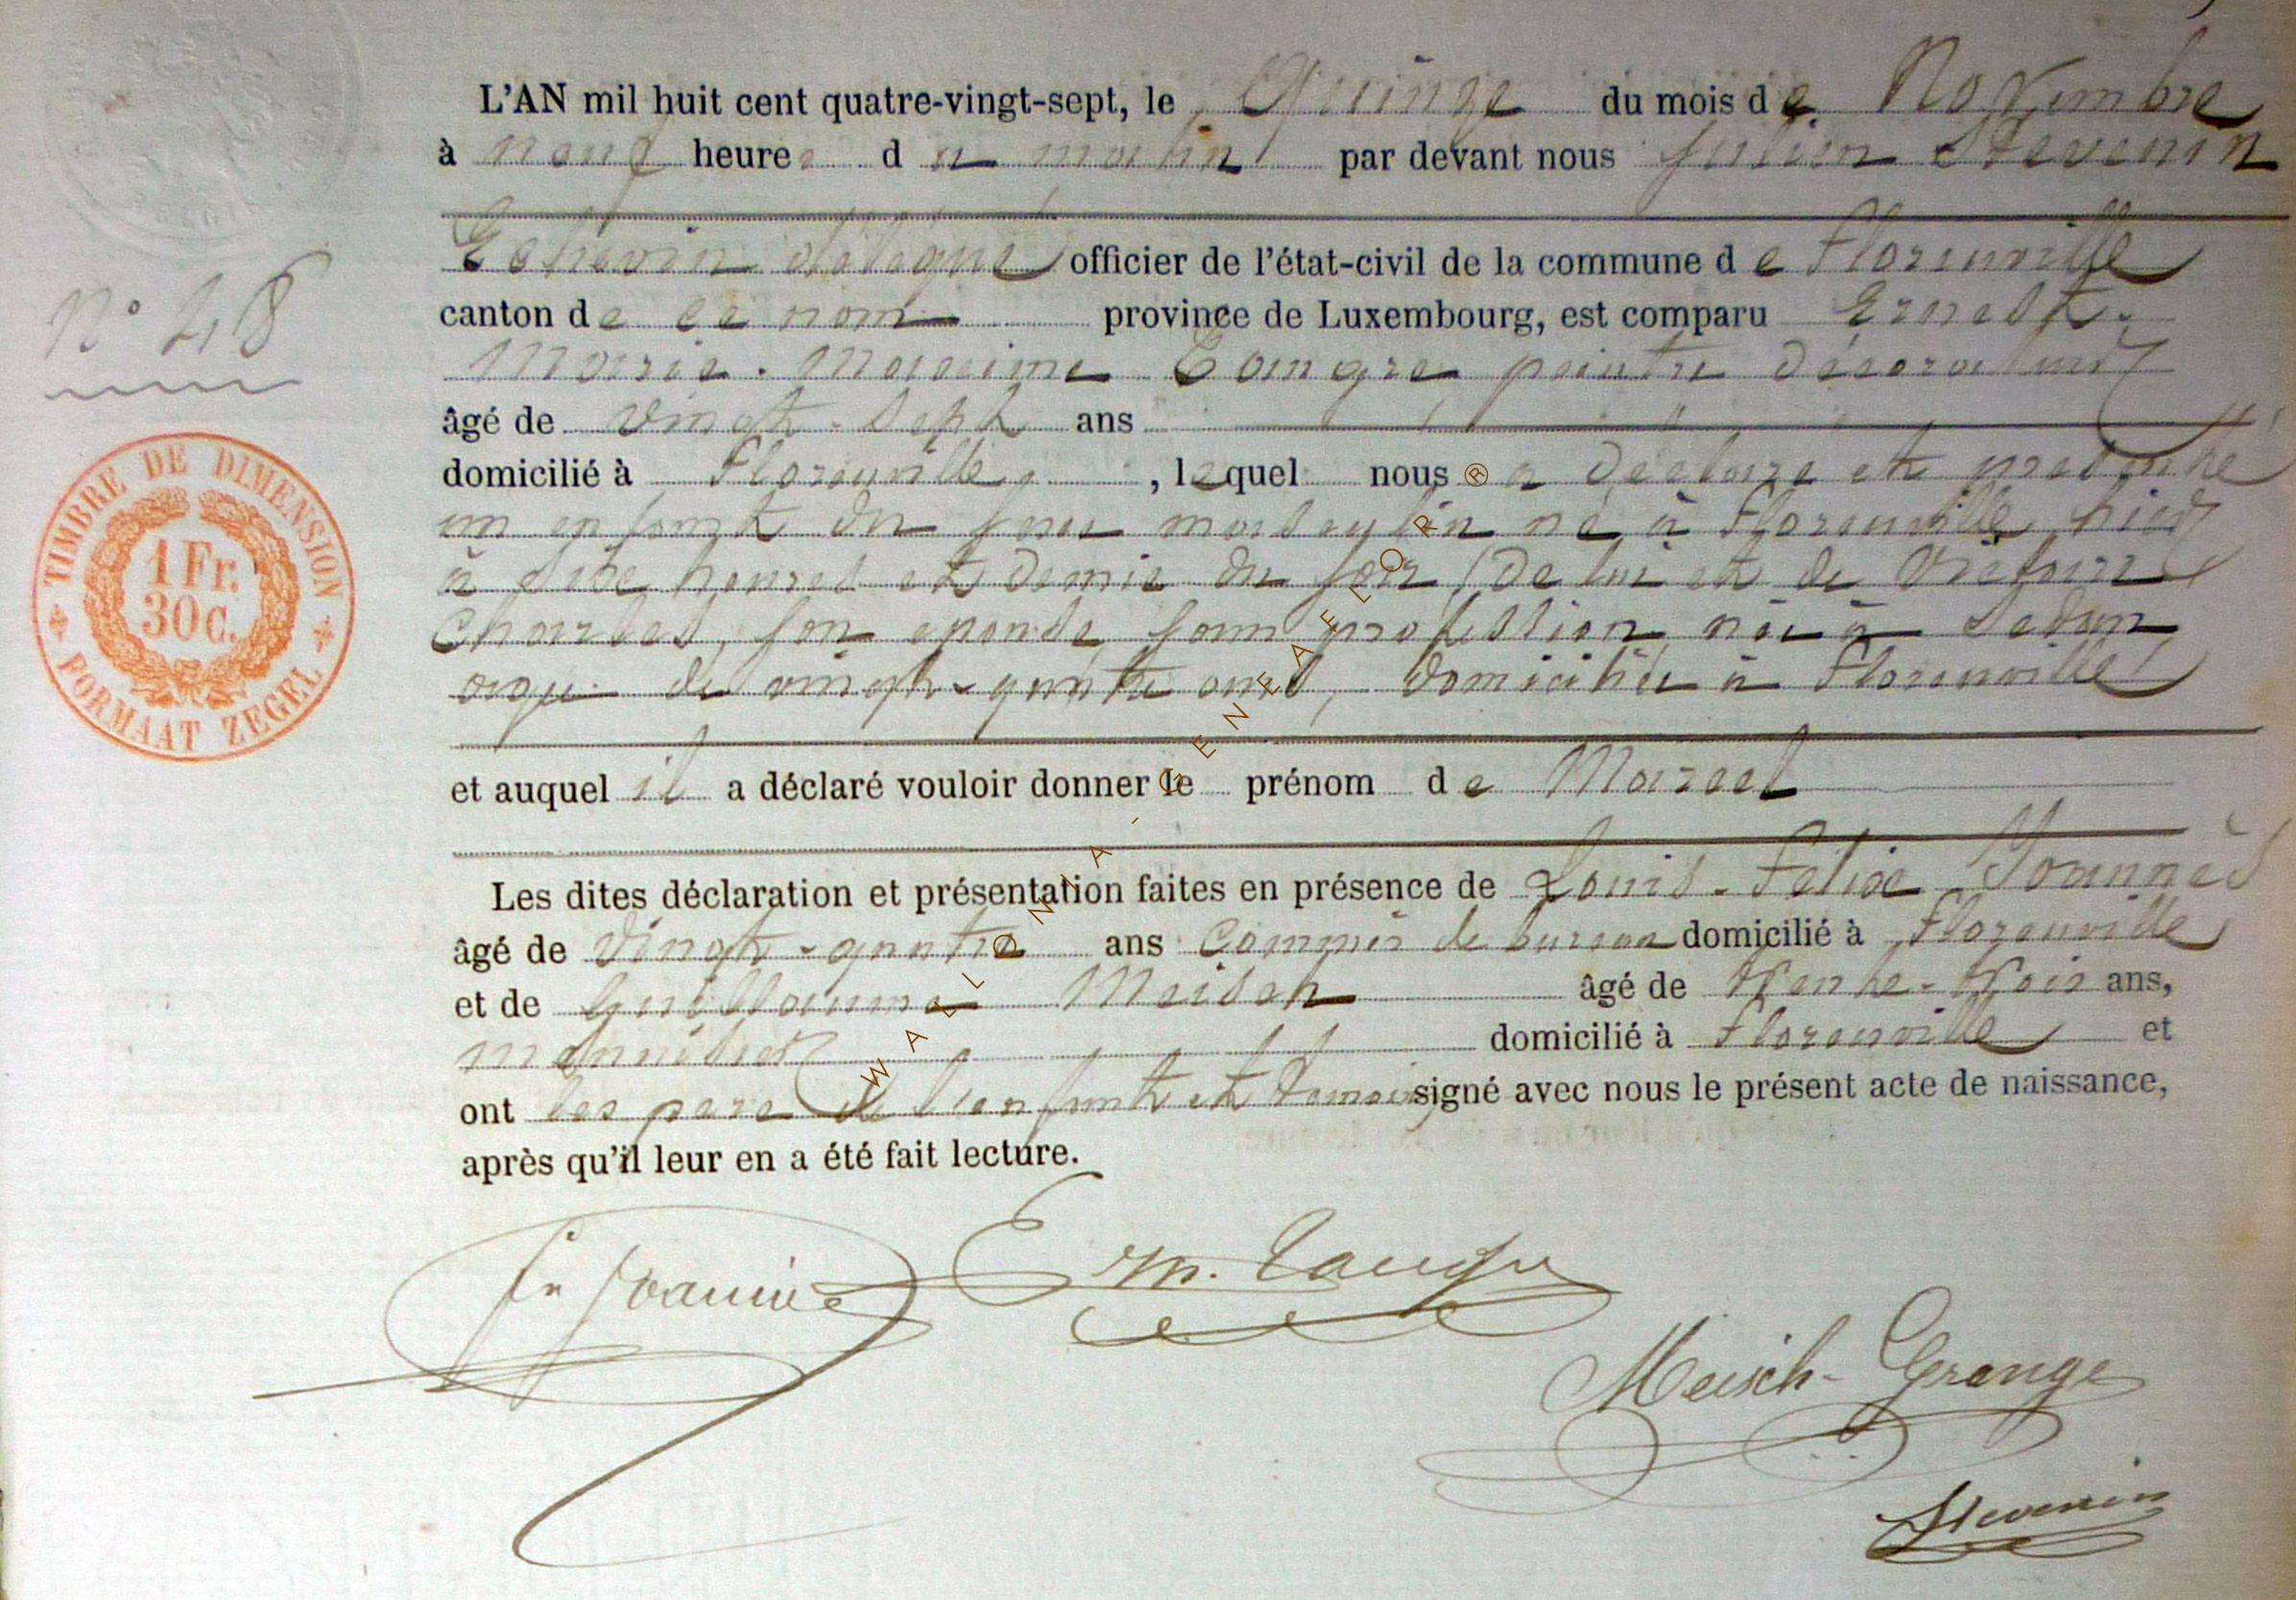 L'AN mil huit cent quatre-vingt-sept, le Quinze du mois de Novembre
à neuf heures du matin par devant nous Julien Stevenin
Echevin délégué officier de l'état-civil de la commune de Florenville
canton de ce nom province de Luxembourg, est comparu Ernest
Marie Maxime Tangre peintre décorateur
âgé de vingt-sept ans
domicilié à Florenville, lequel nous a déclaré et présenté
un enfant du sexe masculin né à Florenville hier
à six heures et demie du soir, de lui et de Victoire
Charles, son épouse, sans profession, née à Sedan
agée de vingt-quatre ans, domiciliée à Florenville
et auquel il a déclaré vouloir donner le prénom de Marcel
Les dites déclaration et présentation faites en présence de Louis-Félix Joannès
âgé de vingt-quatre ans Commis de bureau domicilié à Florenville
et de Guillaume Meisch âgé de trente-trois ans,
menuisier domicilié à Florenville et
ont les père de l'enfant et témoins signé avec nous le présent acte de naissance,
après qu'il leur en a été fait lecture.
N° 48
TIMBRE DE DIMENSION
1 Fr.
30 C.
FORMAAT ZEGEL
WALLONIA - GENEAFLOR ®
E M. Tangre
Meisch-Grange
Stevenin